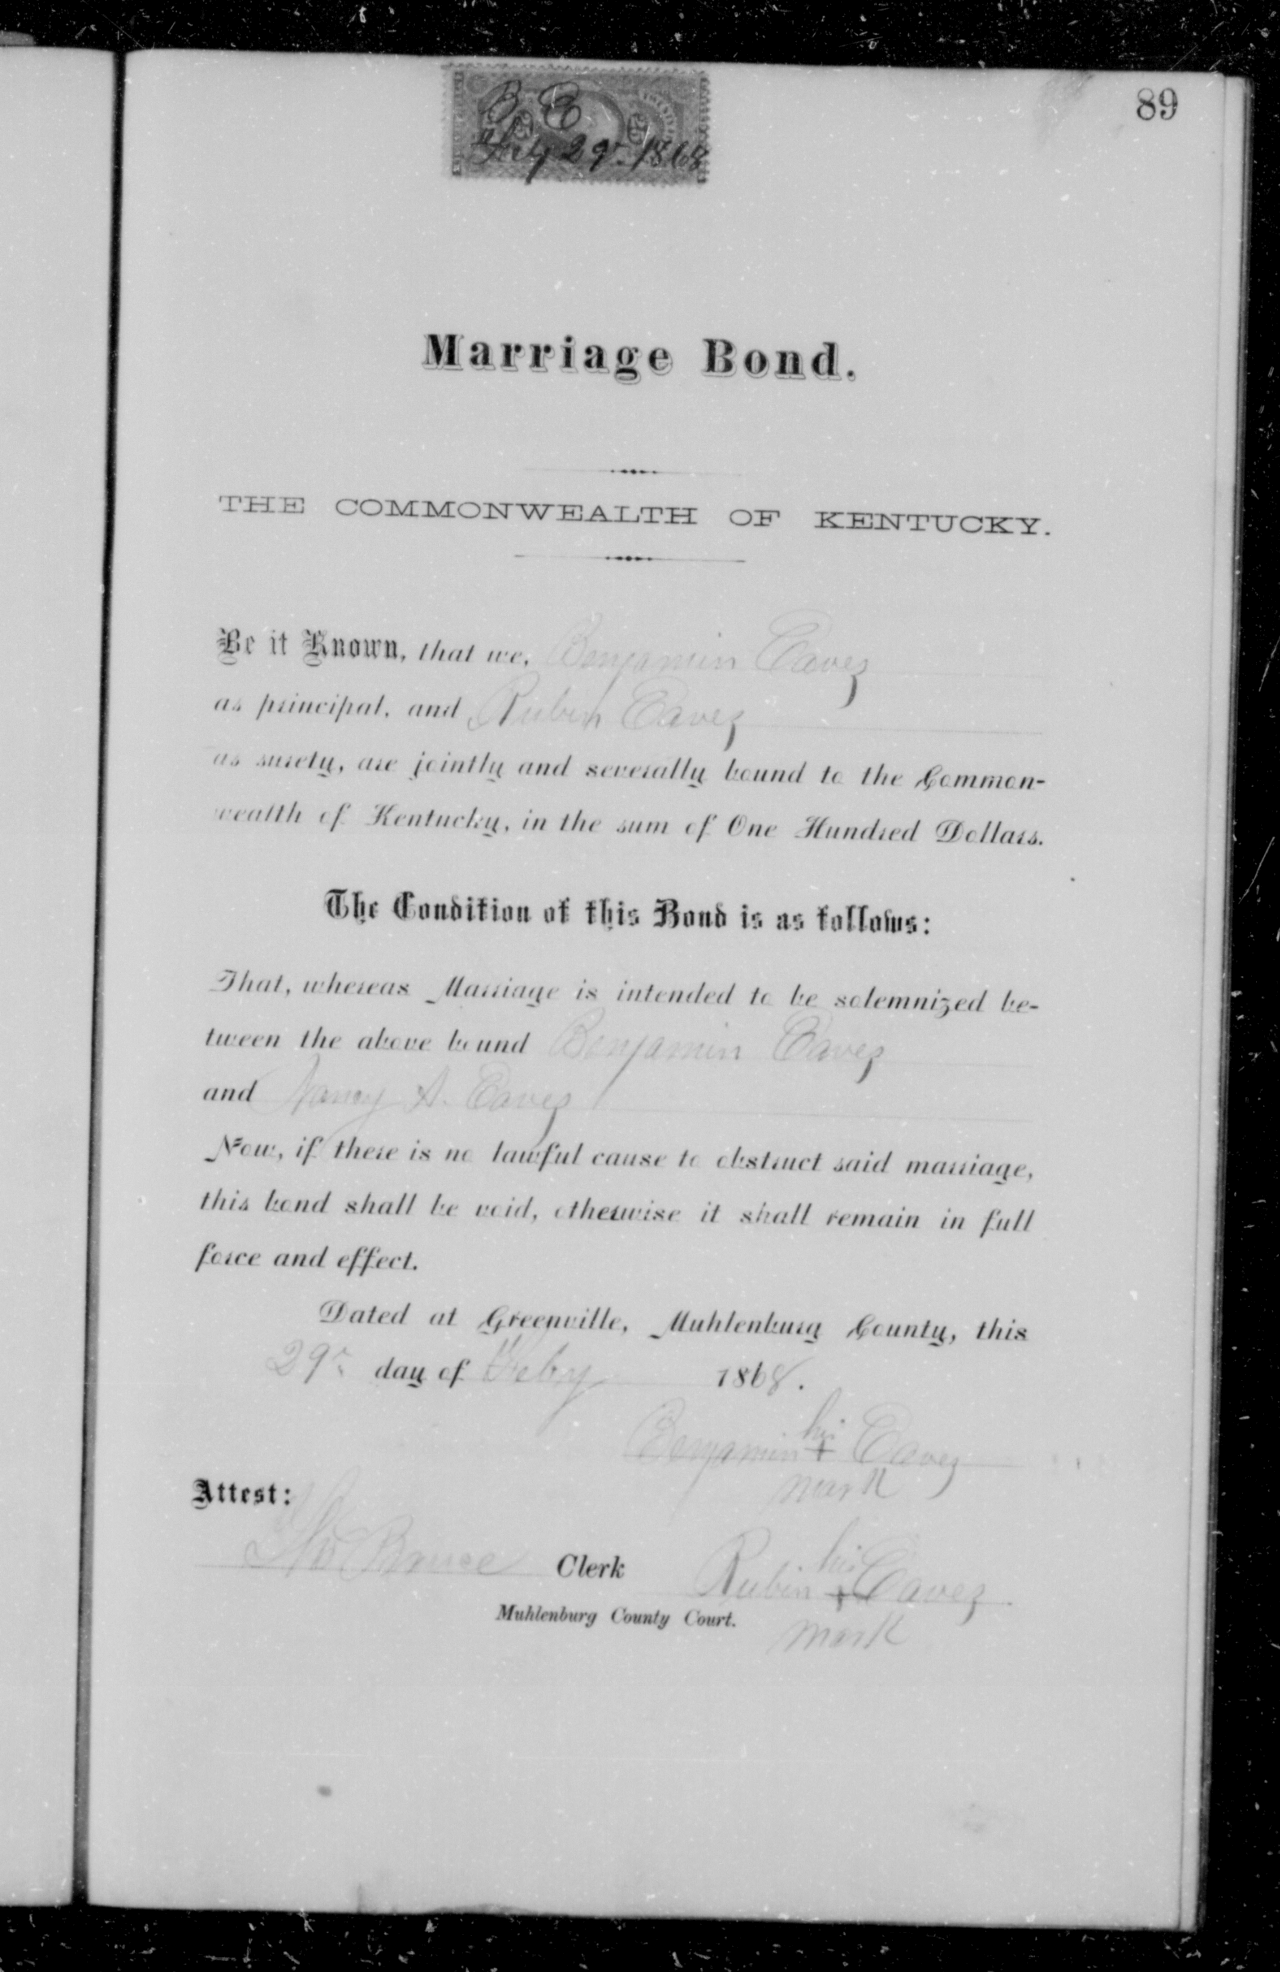 89
B E
Feby 29th 1868
Marriage Bond.
THE COMMONWEALTH OF KENTUCKY.
Be it Known, that we, Benjamin Eaves
as principal, and Rubin Eaves
as surety, are jointly and severally bound to the Common-
wealth of Kentucky, in the sum of One Hundred Dollars.
The Condition of this Bond is as follows:
That, whereas Marriage is intended to be solemnized be-
tween the above bound Benjamin Eaves
and Nancy A. Eaves
Now, if there is no lawful cause to obstruct said marriage,
this bond shall be void, otherwise it shall remain in full
force and effect.
Dated at Greenville, Muhlenburg County, this
29th day of Feby 1868.
his
Benjamin + Eaves
mark
Attest:
Bruce Clerk
his
Rubin + Eaves
Muhlenburg County Court.
mark